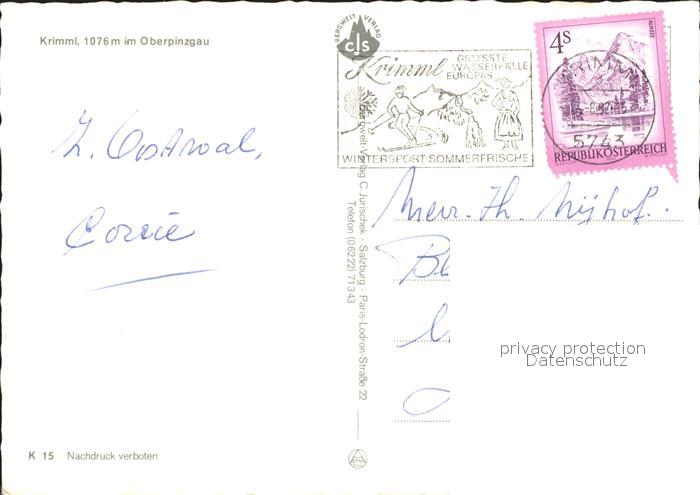 Krimml, 1076 m im Oberpinzgau
BERGWELT VERLAG
cJs
Krimml GRÖSSTE
WASSERFÄLLE
EUROPAS
WINTERSPORT·SOMMERFRISCHE
4S
ALMSEE
5743
REPUBLIK ÖSTERREICH
Corrie
Th. Nijhof.
Bergwelt-Verlag C. Jurischek · Salzburg · Paris-Lodron-Straße 22
Telefon (0 62 22) 71 3 43
privacy protection
Datenschutz
K 15 Nachdruck verboten